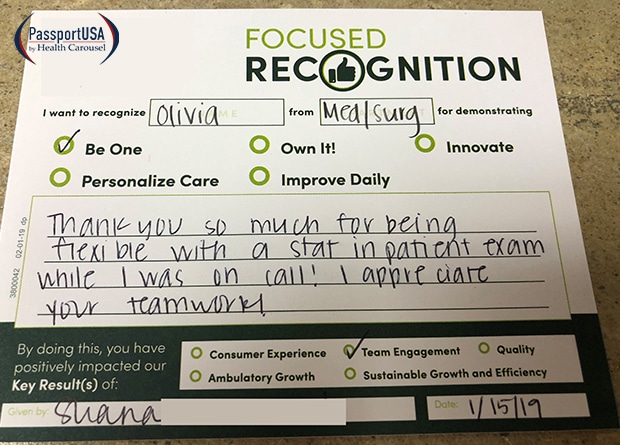 PassportUSA
by Health Carousel
FOCUSED
RECOGNITION
I want to recognize Olivia from Med/surg for demonstrating
Be One Own It! Innovate
Personalize Care Improve Daily
Thank you so much for being
flexible with a stat inpatient exam
while I was on call! I appreciate
your teamwork!
3800042 02-01-19 dp
By doing this, you have
positively impacted our
Key Result(s) of:
Consumer Experience Team Engagement Quality
Ambulatory Growth Sustainable Growth and Efficiency
Given by: Shana
Date: 1/15/19